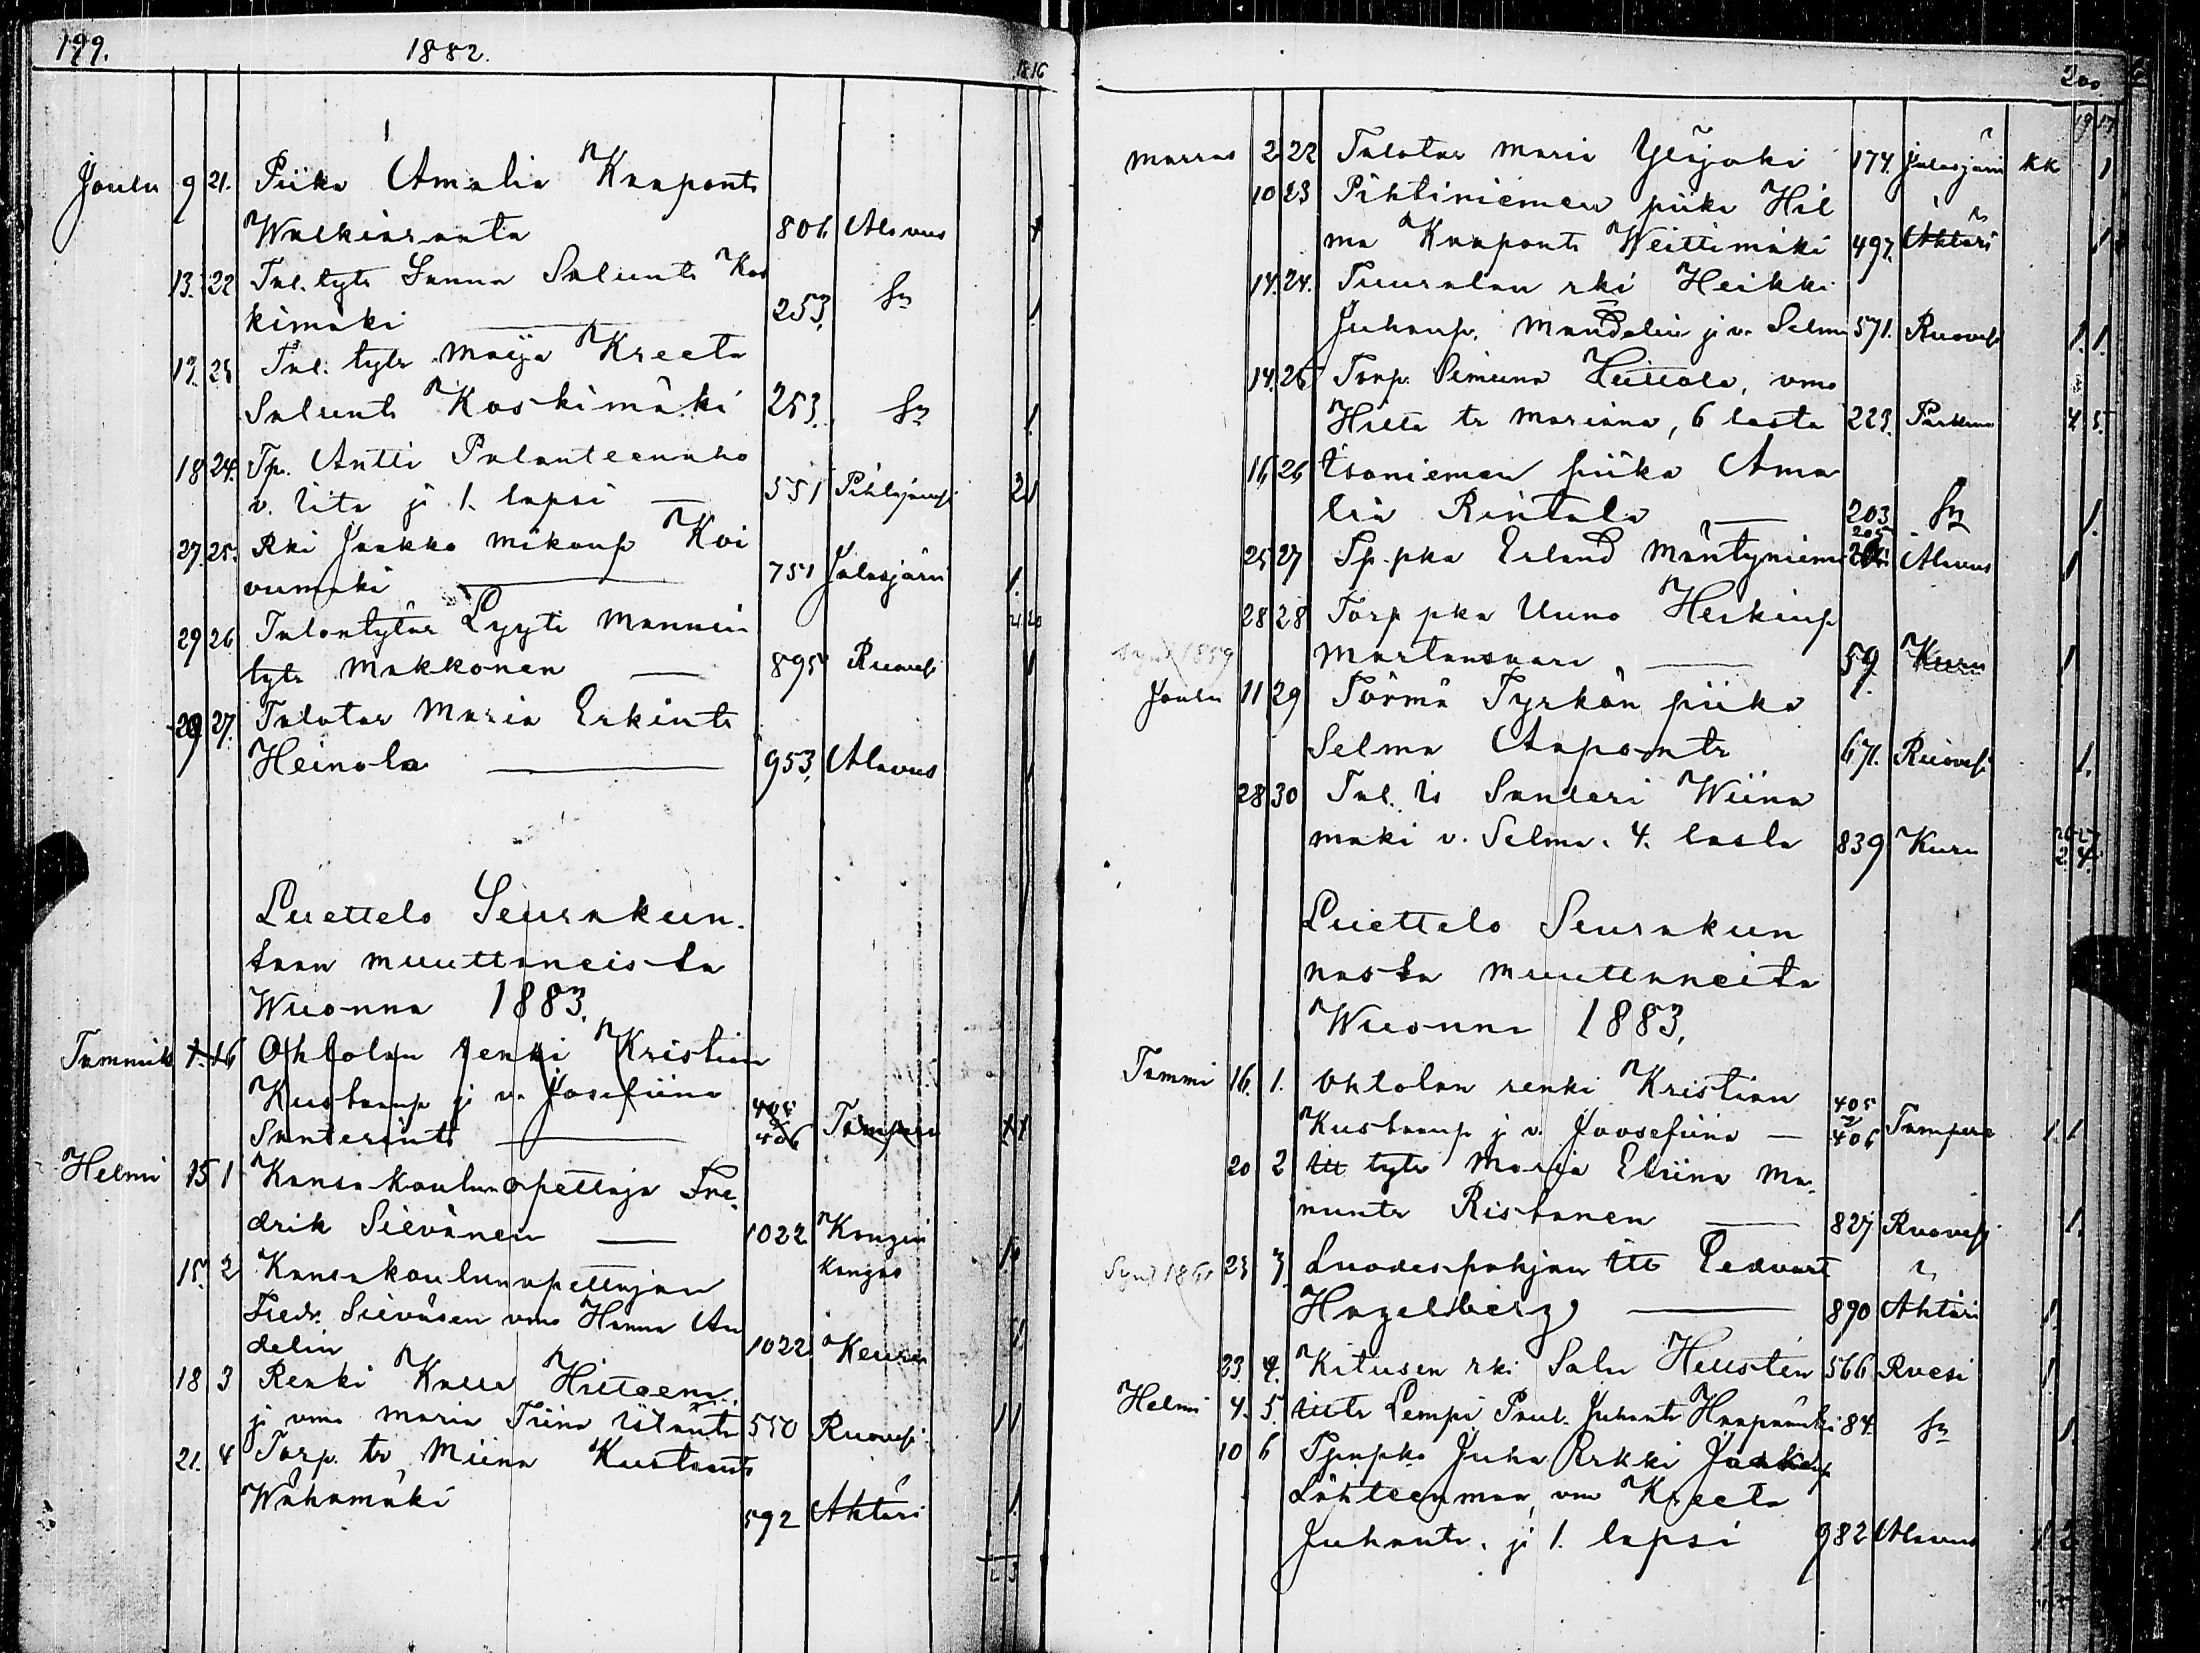 199. 1882.
18 16
Joulu 9 21. Piika Amalia Kaaponts
Walkiaranta 806 Alavus 1
13. 22 Tal. tytr Sanna Salunts Kos
kimäki 253. 1
19. 23 Tal. tytr Maija Kreeta
Salunts Koskimäki 253. 1
18 24. Tp. Antti
v. Vita ja 1. lapsi 551 Pihlajav: 2 1
27. 25. Rki Jaakko Mikonp Koi
vumäki 751 Jalasjärvi 1.
21 20
29 26 Talontytär Lyyti Mannin
tytr Makkonen 895 Ruovesi 1
29 27. Talotar Maria Erkints
Heinola 953. Alavus 1
Luettelo Seurakun-
taan muuttaneista
Wuonna 1883.
Tammik 16 Ohtolan renki Kristian
Kustaanp ja v. Joosefiina 405
Santerints 406 Tampere 1 1
Helmi 15 1 Kansakoulunopettaja Fre,
drik Sievänen 1022 Kangas
kangas
15. 2 Kansakoulunopettajan
Fredr. Sieväsen vmo Hanna An
delin 1022 Keuru
18 3 Renki Kalle
ja vmo Maria Tiina 550 Ruovesi 1 1
21. 4 Torp. tr Miina Kustaants
Wähämäki 592 Ähtäri 1
200.
19 17
Marras 2 22 Talotar Maria Ylijoki 174. Jalasjärvi kk 1
10 23 Pihtiniemen piika Hil
ma Kaaponts Weittimäki 497. Ähtäri 1
14. 24. Tuuralan rki Heikki
Juhanp. Mandelin ja v. Selma 571. Ruovesi 1. 1.
14. 26 Torp. Simuna Heittola, vmo
Hilta tr Mariana, 6 lasta 223. Parkano 4 5.
16, 26 piika Ama
lia Rintala 203 1.
205
25 27 Tp. pka Erland Mäntyniemi Alavus 1
28 28 Torp pka Uuno Heikinp
Synd 1859 Martansaari, 59. Kuru 1
Joulu 11 29 Törmä Tyrkön piika
Selma Aapontr 671. Ruovesi 1.
28 30 Tal. is Santeri Wiina
mäki v. Selma. 4. lasta 839 Kuru 2. 4.
Luettelo Seurakun
nasta muuttaneita
Wuonna 1883,
Tammi 16. 1. Ohtolan renki Kristian
Kustaanp ja v. Joosefiina 405 406 Tampere 1. 1.
20 2 itt tytr Maria Eliina Ma,
nunts Ristanen 827 Ruovesi 1.
Synd 1861 23 3. Luodespohjan itt Eedvart
Hagelberg 890 Ähtäri 1.
23 4. Kitusen rki Salu Heusten 566 Rvesi 1
Helmi 4. 5. Lempi Juhants 84. 1.
10 6 Juha Erkki Jaakonp
Lähteenmaa, vm Kreeta
Juhants. ja 1. lapsi 982 Alavus 1 2